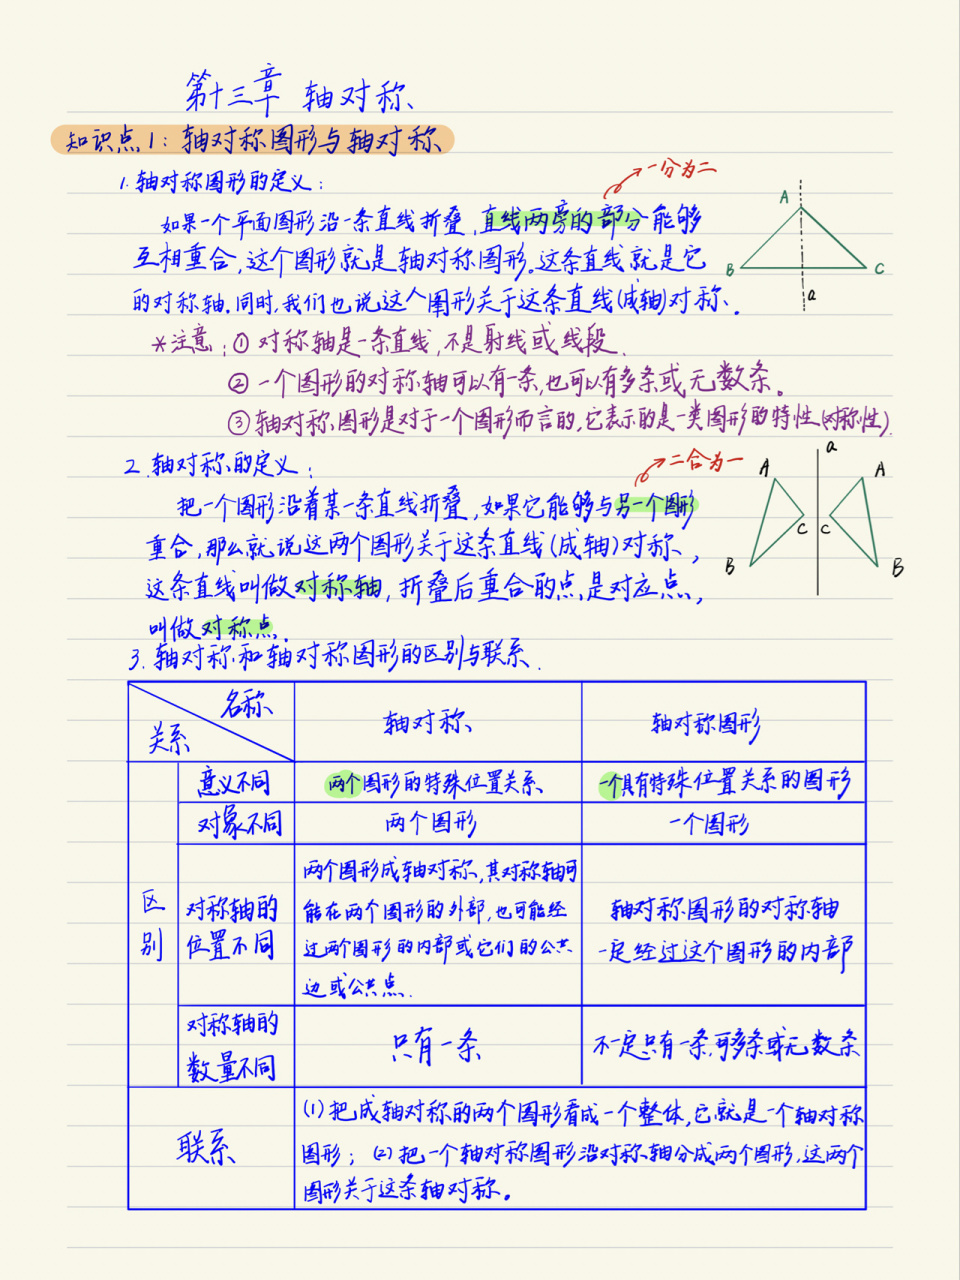 第十三章 轴对称
知识点1：轴对称图形与轴对称
1.轴对称图形的定义：
一分为二
如果一个平面图形沿一条直线折叠，直线两旁的部分能够
互相重合，这个图形就是轴对称图形。这条直线就是它
的对称轴.同时，我们也说这个图形关于这条直线(成轴)对称.
A
B
C
a
*注意：①对称轴是一条直线，不是射线或线段.
②一个图形的对称轴可以有一条，也可以有多条或无数条。
③轴对称图形是对于一个图形而言的，它表示的是一类图形的特性(对称性).
2.轴对称的定义：
二合为一
把一个图形沿着某一条直线折叠，如果它能够与另一个图形
重合，那么就说这两个图形关于这条直线(成轴)对称，
这条直线叫做对称轴，折叠后重合的点是对应点，
叫做对称点.
a
A A
C C
B B
3.轴对称和轴对称图形的区别与联系.
名称
关系
轴对称
轴对称图形
区别
意义不同
两个图形的特殊位置关系
一个具有特殊位置关系的图形
对象不同
两个图形
一个图形
对称轴的
位置不同
两个图形成轴对称，其对称轴可
能在两个图形的外部，也可能经
过两个图形的内部或它们的公共
边或公共点.
轴对称图形的对称轴
一定经过这个图形的内部
对称轴的
数量不同
只有一条
不一定只有一条，可多条或无数条
联系
(1)把成轴对称的两个图形看成一个整体，它就是一个轴对称
图形；(2)把一个轴对称图形沿对称轴分成两个图形，这两个
图形关于这条轴对称。